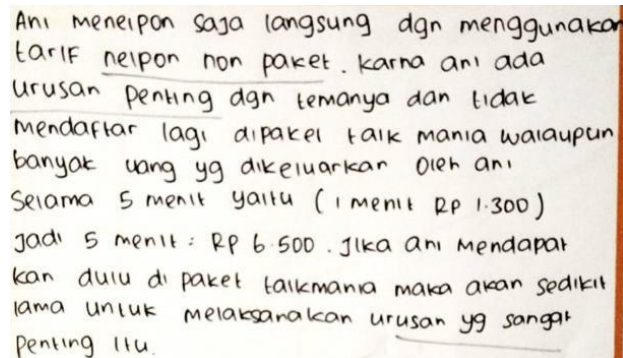 Ani menelpon saja langsung dgn menggunakan
tarif nelpon non paket. karna ani ada
urusan penting dgn temanya dan tidak
mendaftar lagi dipaket talk mania walaupun
banyak uang yg dikeluarkan oleh ani
Selama 5 menit yaitu (1 menit Rp 1.300)
Jadi 5 menit : Rp 6.500. Jika ani mendapat
kan dulu di paket talkmania maka akan sedikit
lama untuk melaksanakan urusan yg sangat
penting itu.